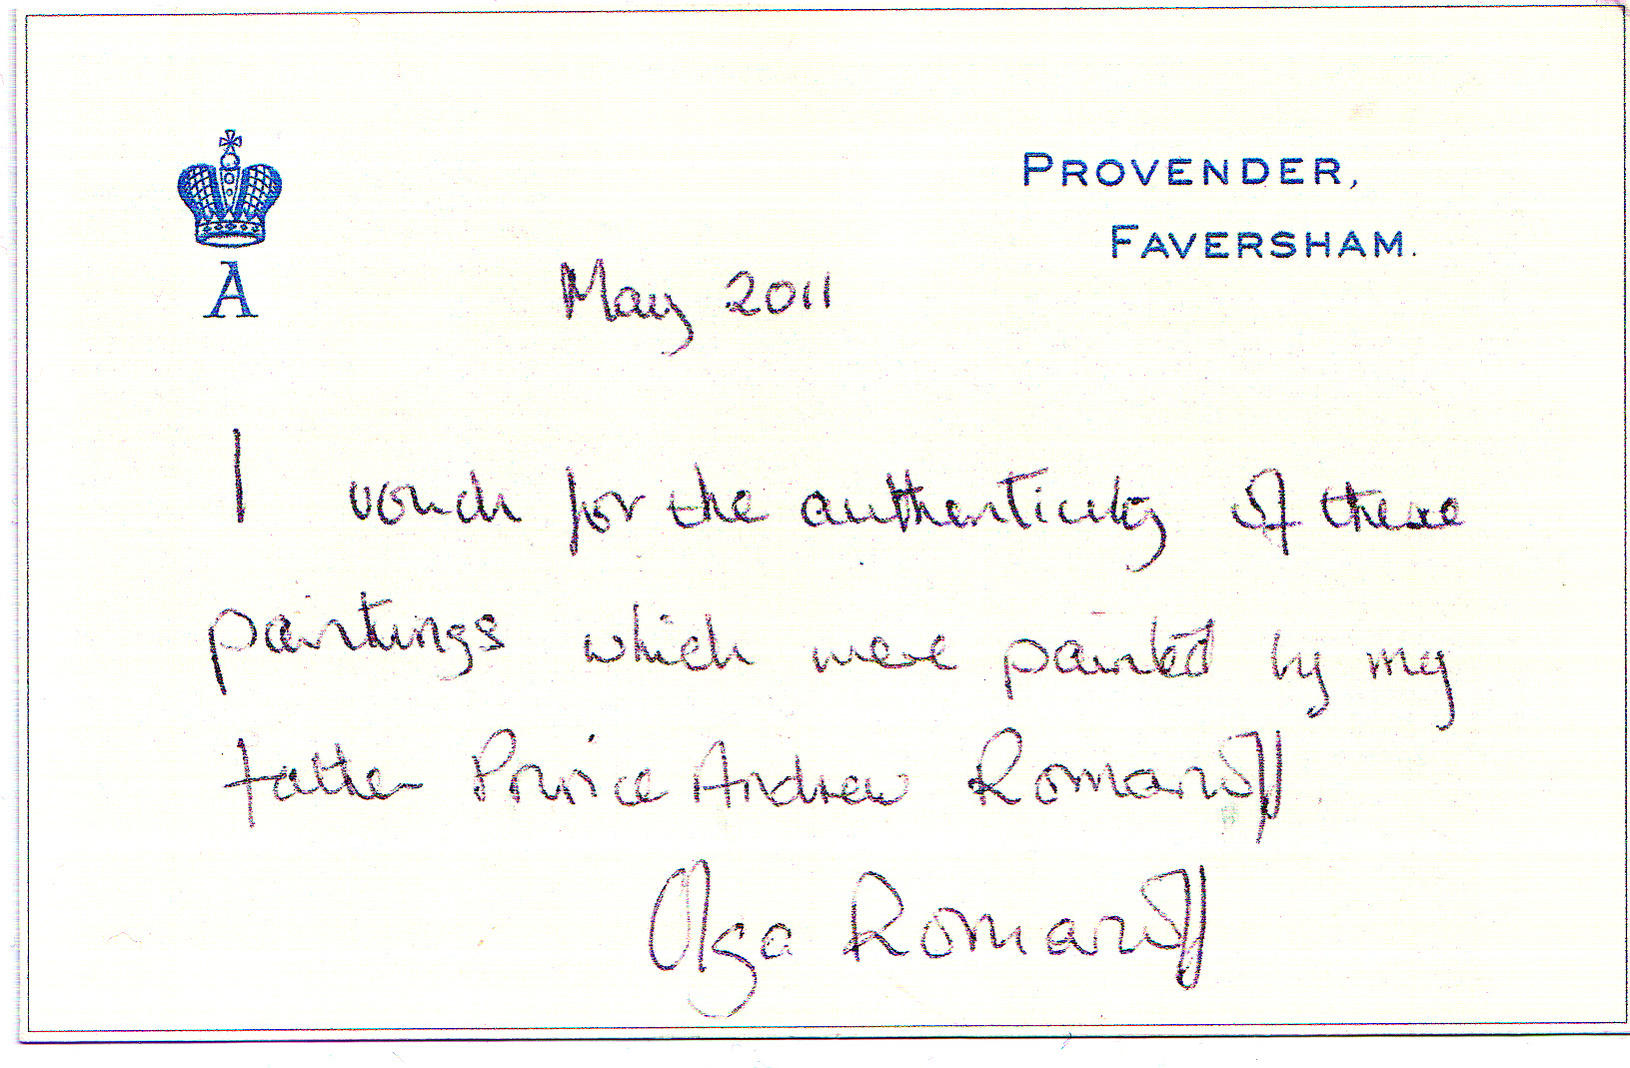 PROVENDER,
FAVERSHAM.
A
May 2011
I vouch for the authenticity of these
paintings which were painted by my
father Prince Andrew Romanoff.
Olga Romanoff